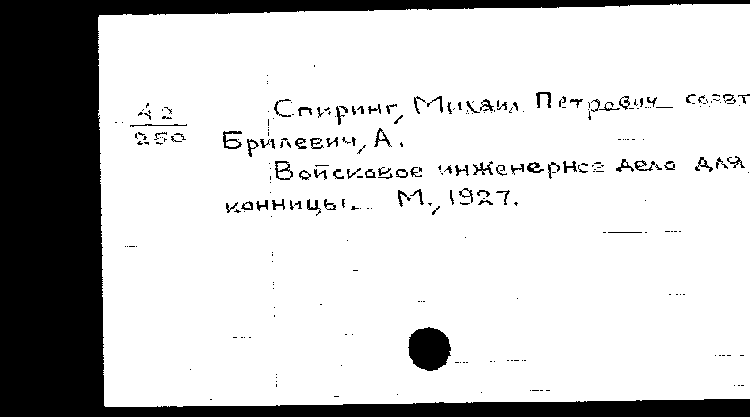 42
250
Спиринг, Михаил Петрович соавт
Брилевич, А.
Войсковое инженерное дело для
конницы. М., 1927.